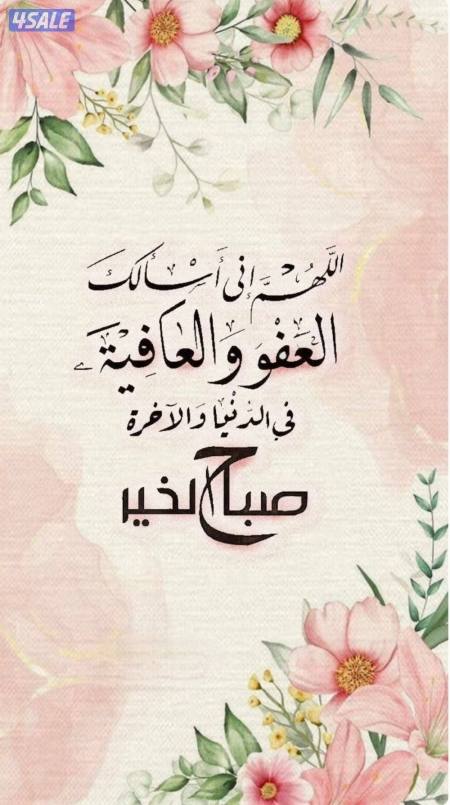 4SALE
اللَّهُمَّ إني أسألك
العَفْوَ وَالعَافِيَةَ
في الدُّنْيَا وَالآخرة
صباح الخير